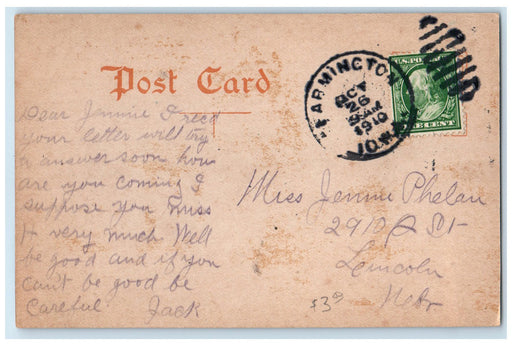 Post Card
FARMINGTON
OCT
26
1910
IOWA
U.S. POSTAGE
Dear Jennie I recd
your letter will try
& answer soon how
are you coming I
suppose you miss
H very much Well
be good and if you
can't be good be
careful Jack
Miss Jennie Phelan
St
Lincoln
Nebr